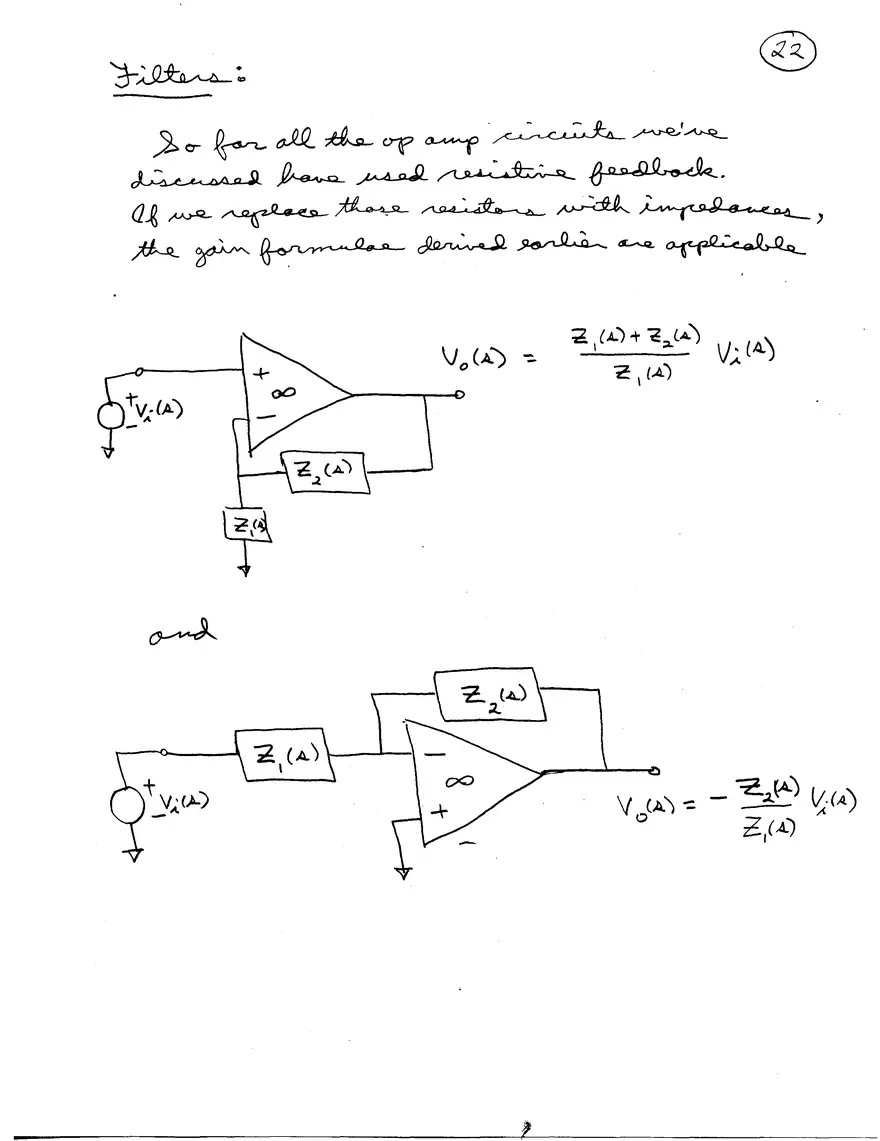 22
Filters:
So far all the op amp circuits we've
discussed have used resistive feedback.
If we replace those resistors with impedances,
the gain formulae derived earlier are applicable
+
∞
−
+
Vi(s)
−
Z2(s)
Z1(s)
Vo(s) = (Z1(s) + Z2(s)) / Z1(s) Vi(s)
and
Z2(s)
Z1(s)
−
∞
+
+
Vi(s)
−
Vo(s) = − Z2(s) / Z1(s) Vi(s)